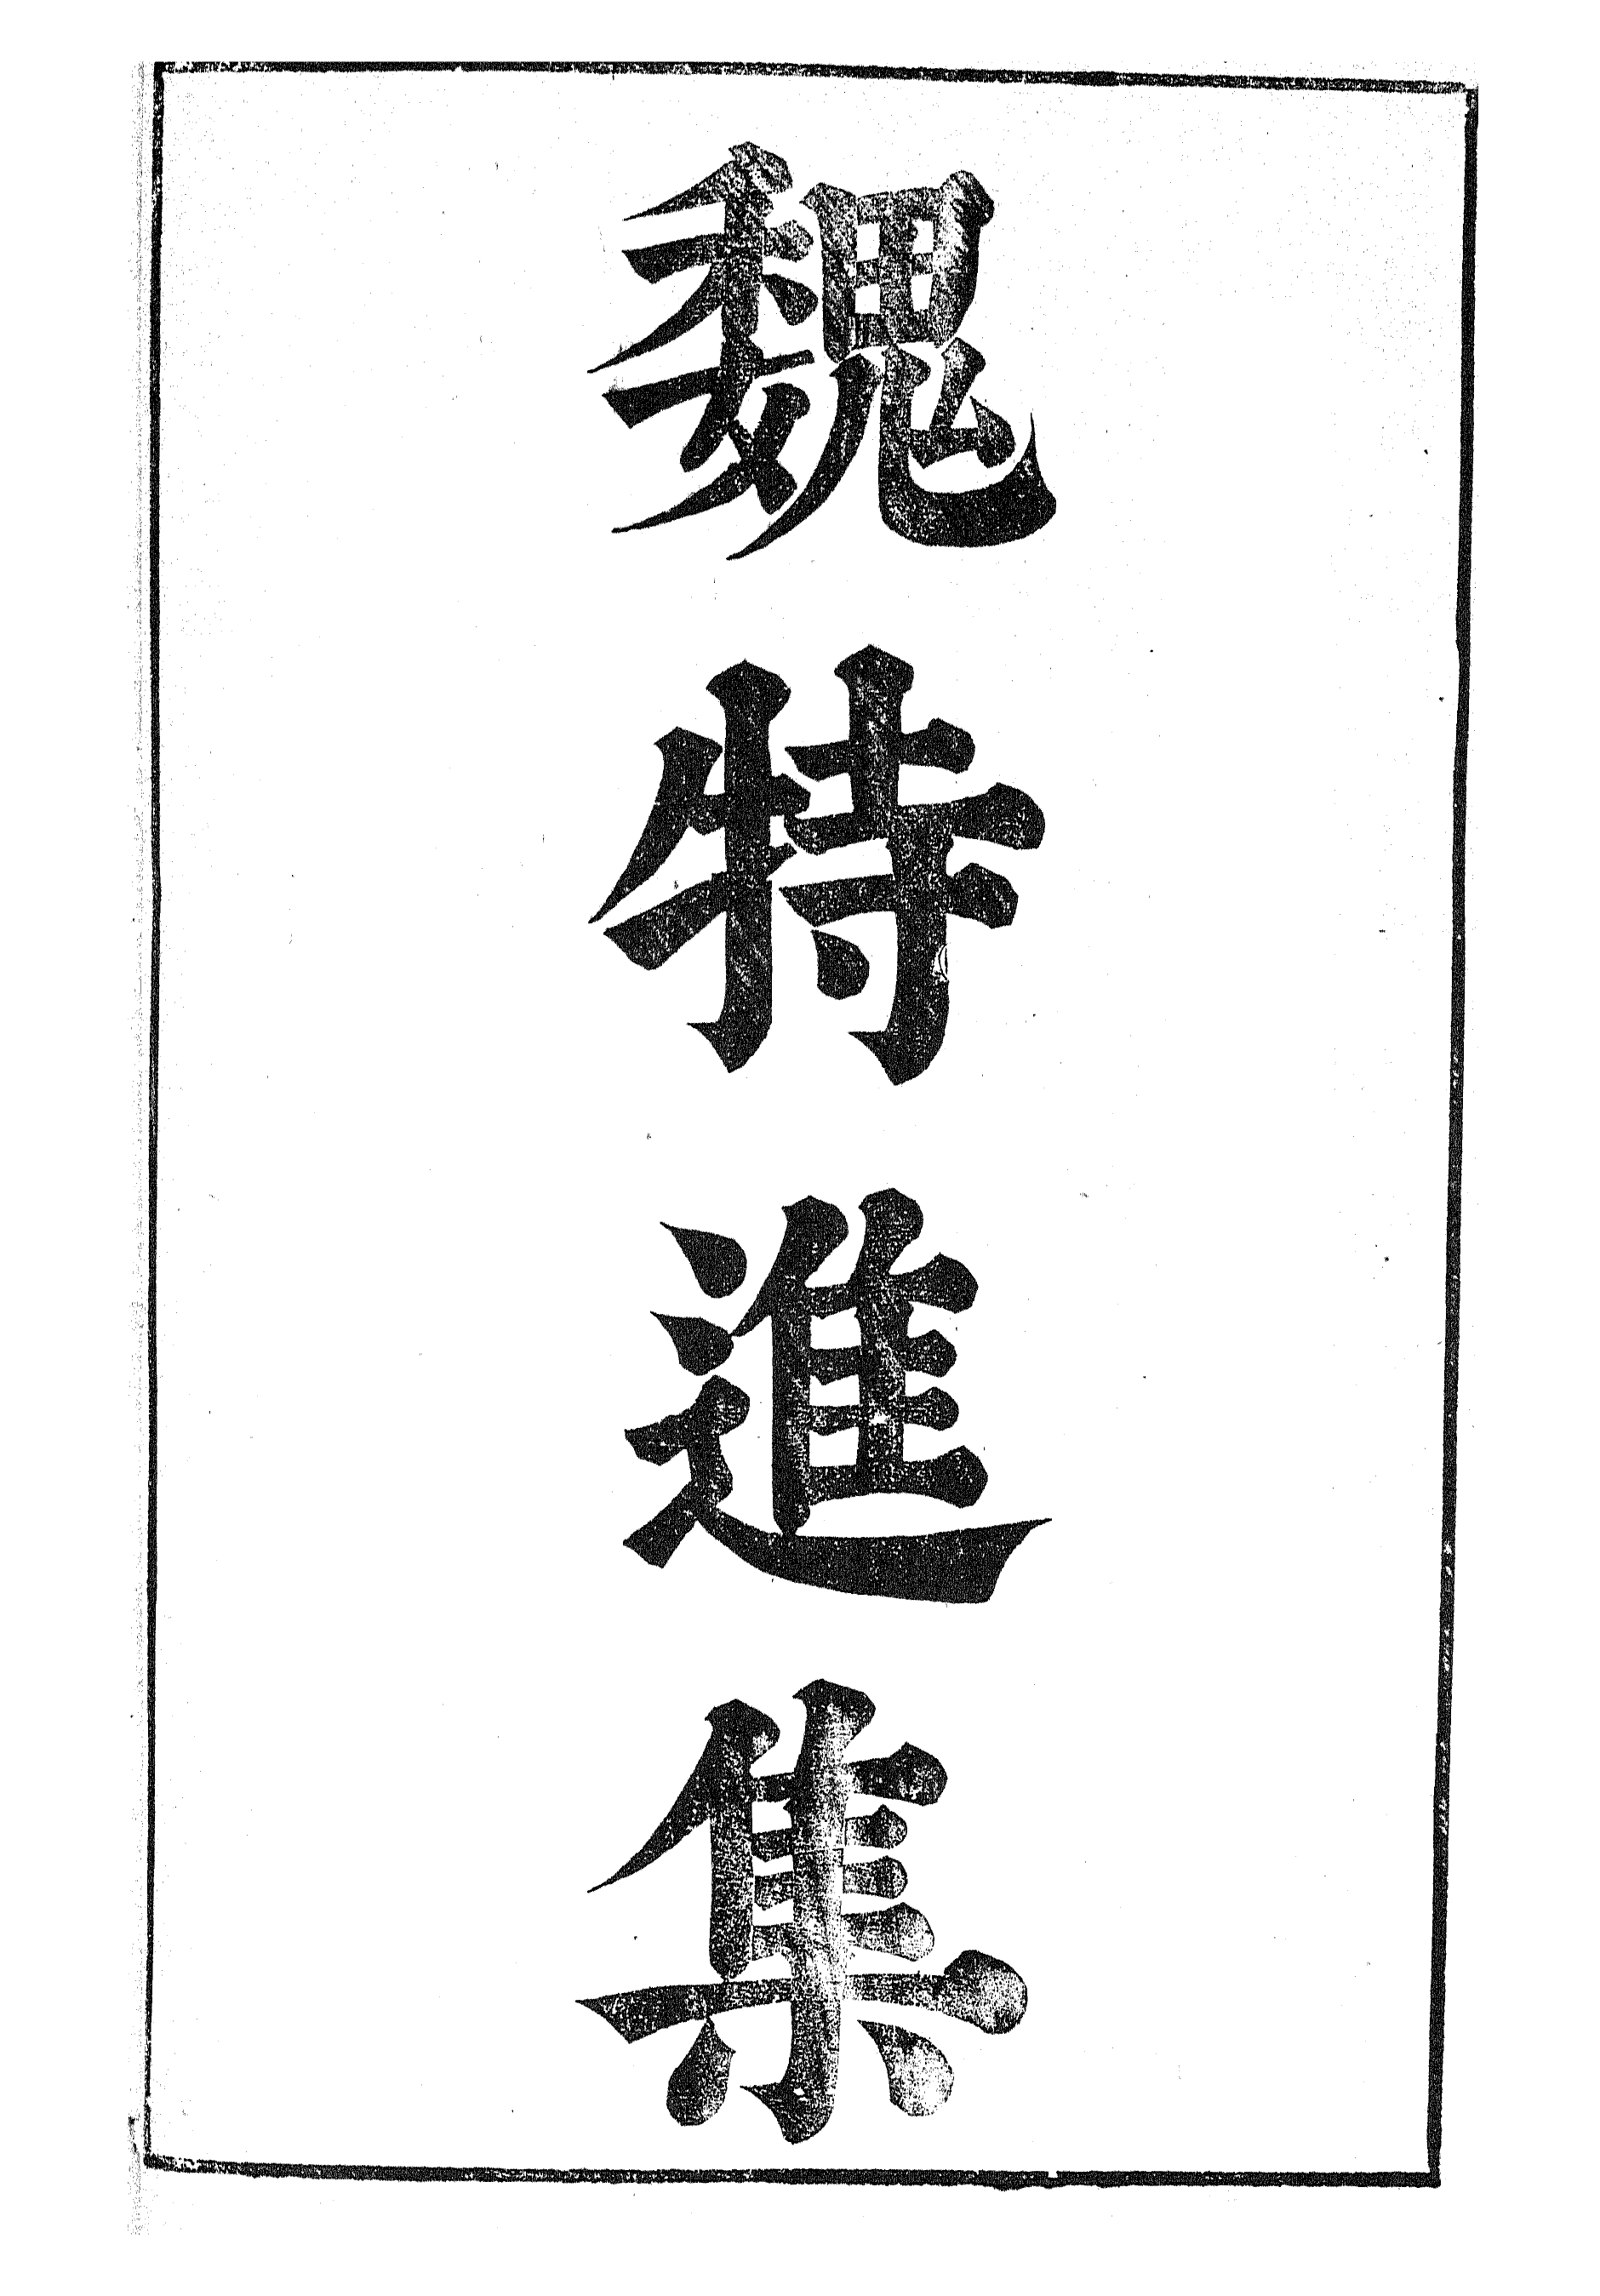 魏特進集